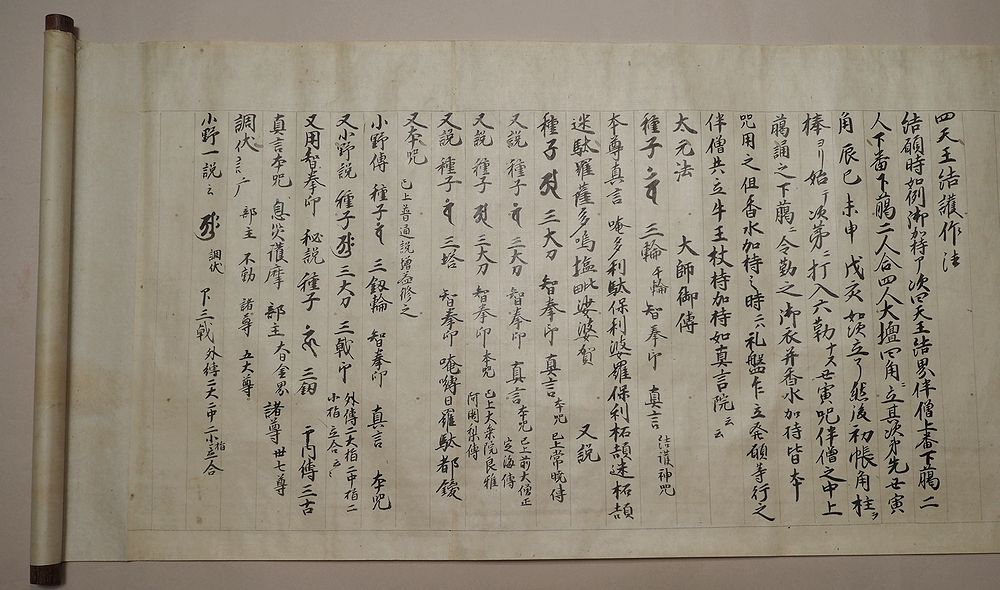 四天王結護作法
結願時如例御加持了次四天王結界伴僧上番下﨟二
人下番下﨟二人合四人大壇四角ニ立其次第先丑寅
角辰巳未申戌亥如次立了然後初帳角柱ヲ
棒ヨリ始テ次第ニ打入六勒ナス丑寅呪伴僧之中上
﨟誦之下﨟ニ令勤之御衣并香水加持皆本
呪用之但香水加持之時ニハ礼盤乍立発願等行之
伴僧共立牛王杖持加持如真言院云云
太元法 大師御傳
種子 三輪千輪 智拳印 真言結護神咒
本尊真言 唵多利駄保利婆羅保利柘頡迷柘頡
迷駄羅薩多嗚搵毗娑婆賀 又説
種子 三大刀 智拳印 真言本咒 已上常暁傳
又説 種子 三大刀 智拳印 真言本咒 已上前大僧正定海傳
又説 種子 三大刀 智拳印本咒 已上大乗院良雅阿闍梨傳
又説 種子 三塔 智拳印 唵嚩日羅駄都鑁
又本咒 已上普通説増益修之
小野傳 種子 三釼輪 智拳印 真言 本咒
又小野説 種子 三大刀 三戟印 外縛二大指二中指二小指立合云々
又用智拳印 秘説種子 三釼 内縛三古
真言本咒 息災護摩 部主大日金界 諸尊 卅七尊
調伏 部主 不動 諸尊 五大尊
小野一説云 調伏 三戟 外縛二大二中二小指立合